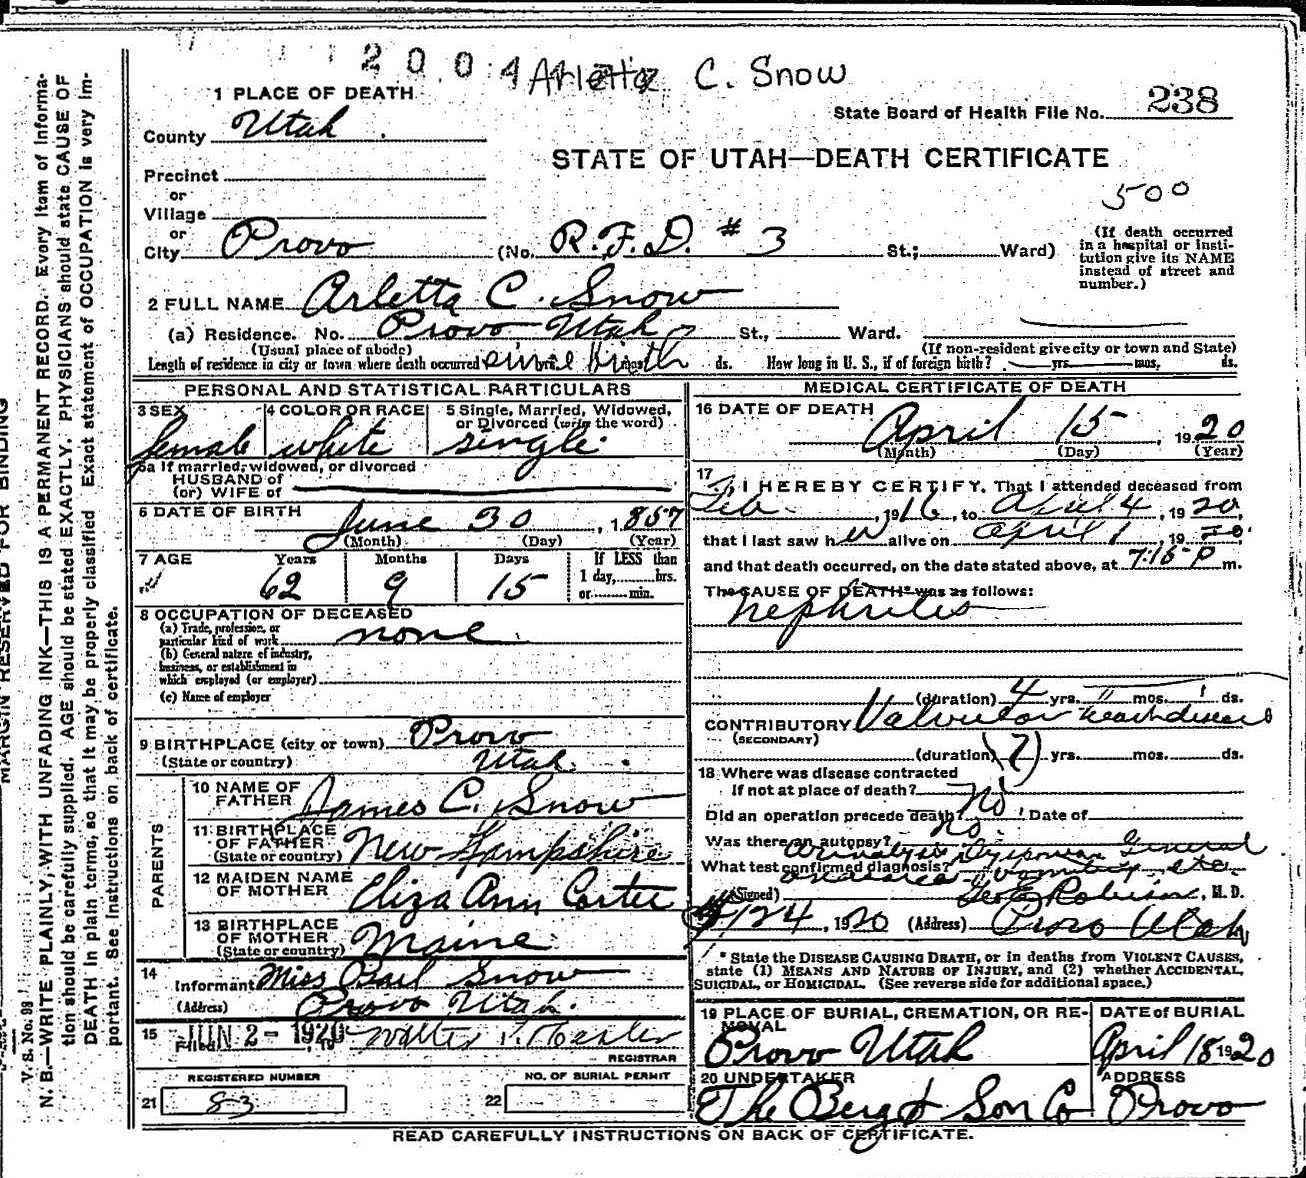 2004 Arletta C. Snow
1 PLACE OF DEATH
County Utah
State Board of Health File No. 238
STATE OF UTAH—DEATH CERTIFICATE
Precinct
or
Village
or
500
City Provo (No. R.F.D. # 3 St.; Ward)
(If death occurred in a hospital or institution give its NAME instead of street and number.)
2 FULL NAME Arletta C. Snow
(a) Residence. No. Provo Utah St., Ward.
(Usual place of abode) (If non-resident give city or town and State)
Length of residence in city or town where death occurred since birth ds. How long in U. S., if of foreign birth? yrs. mos. ds.
PERSONAL AND STATISTICAL PARTICULARS
3 SEX female
4 COLOR OR RACE white
5 Single, Married, Widowed, or Divorced (write the word) single
5a If married, widowed, or divorced
HUSBAND of
(or) WIFE of
6 DATE OF BIRTH June 30, 1857
(Month) (Day) (Year)
7 AGE Years Months Days If LESS than
62 9 15 1 day, hrs.
or min.
8 OCCUPATION OF DECEASED
(a) Trade, profession, or
particular kind of work none
(b) General nature of industry,
business, or establishment in
which employed (or employer)
(c) Name of employer
9 BIRTHPLACE (city or town) Provo
(State or country) Utah.
PARENTS
10 NAME OF FATHER James C. Snow
11 BIRTHPLACE OF FATHER (State or country) New Hampshire
12 MAIDEN NAME OF MOTHER Eliza Ann Carter
13 BIRTHPLACE OF MOTHER (State or country) Maine
14 Informant Miss Snow
(Address) Provo Utah.
15 Filed JUN 2 - 1920, 19 Walter T.
REGISTRAR
REGISTERED NUMBER NO. OF BURIAL PERMIT
21 83 22
MEDICAL CERTIFICATE OF DEATH
16 DATE OF DEATH April 15, 1920
(Month) (Day) (Year)
17 I HEREBY CERTIFY, That I attended deceased from
Feb., 1916, to April 4, 1920,
that I last saw her alive on April 1, 1920
and that death occurred, on the date stated above, at 7:15 p m.
The CAUSE OF DEATH* was as follows:
Nephritis
(duration) 4 yrs. 11 mos. 1 ds.
CONTRIBUTORY Valvular heart disease
(SECONDARY)
(duration) (?) yrs. mos. ds.
18 Where was disease contracted
If not at place of death?
Did an operation precede death? No Date of
Was there an autopsy? No.
What test confirmed diagnosis? Urinalysis General
vomiting etc.
(Signed) Geo E Robison, M. D.
4/24, 1920 (Address) Provo Utah
* State the DISEASE CAUSING DEATH, or in deaths from VIOLENT CAUSES,
state (1) MEANS AND NATURE OF INJURY, and (2) whether ACCIDENTAL,
SUICIDAL, or HOMICIDAL. (See reverse side for additional space.)
19 PLACE OF BURIAL, CREMATION, OR REMOVAL DATE of BURIAL
Provo Utah April 18 1920
20 UNDERTAKER ADDRESS
The Berg & Son Co Provo
READ CAREFULLY INSTRUCTIONS ON BACK OF CERTIFICATE.
MARGIN RESERVED FOR BINDING
V. S. No. 99
N. B.—WRITE PLAINLY, WITH UNFADING INK—THIS IS A PERMANENT RECORD. Every item of informa-
tion should be carefully supplied. AGE should be stated EXACTLY. PHYSICIANS should state CAUSE OF
DEATH in plain terms, so that it may be properly classified. Exact statement of OCCUPATION is very im-
portant. See instructions on back of certificate.